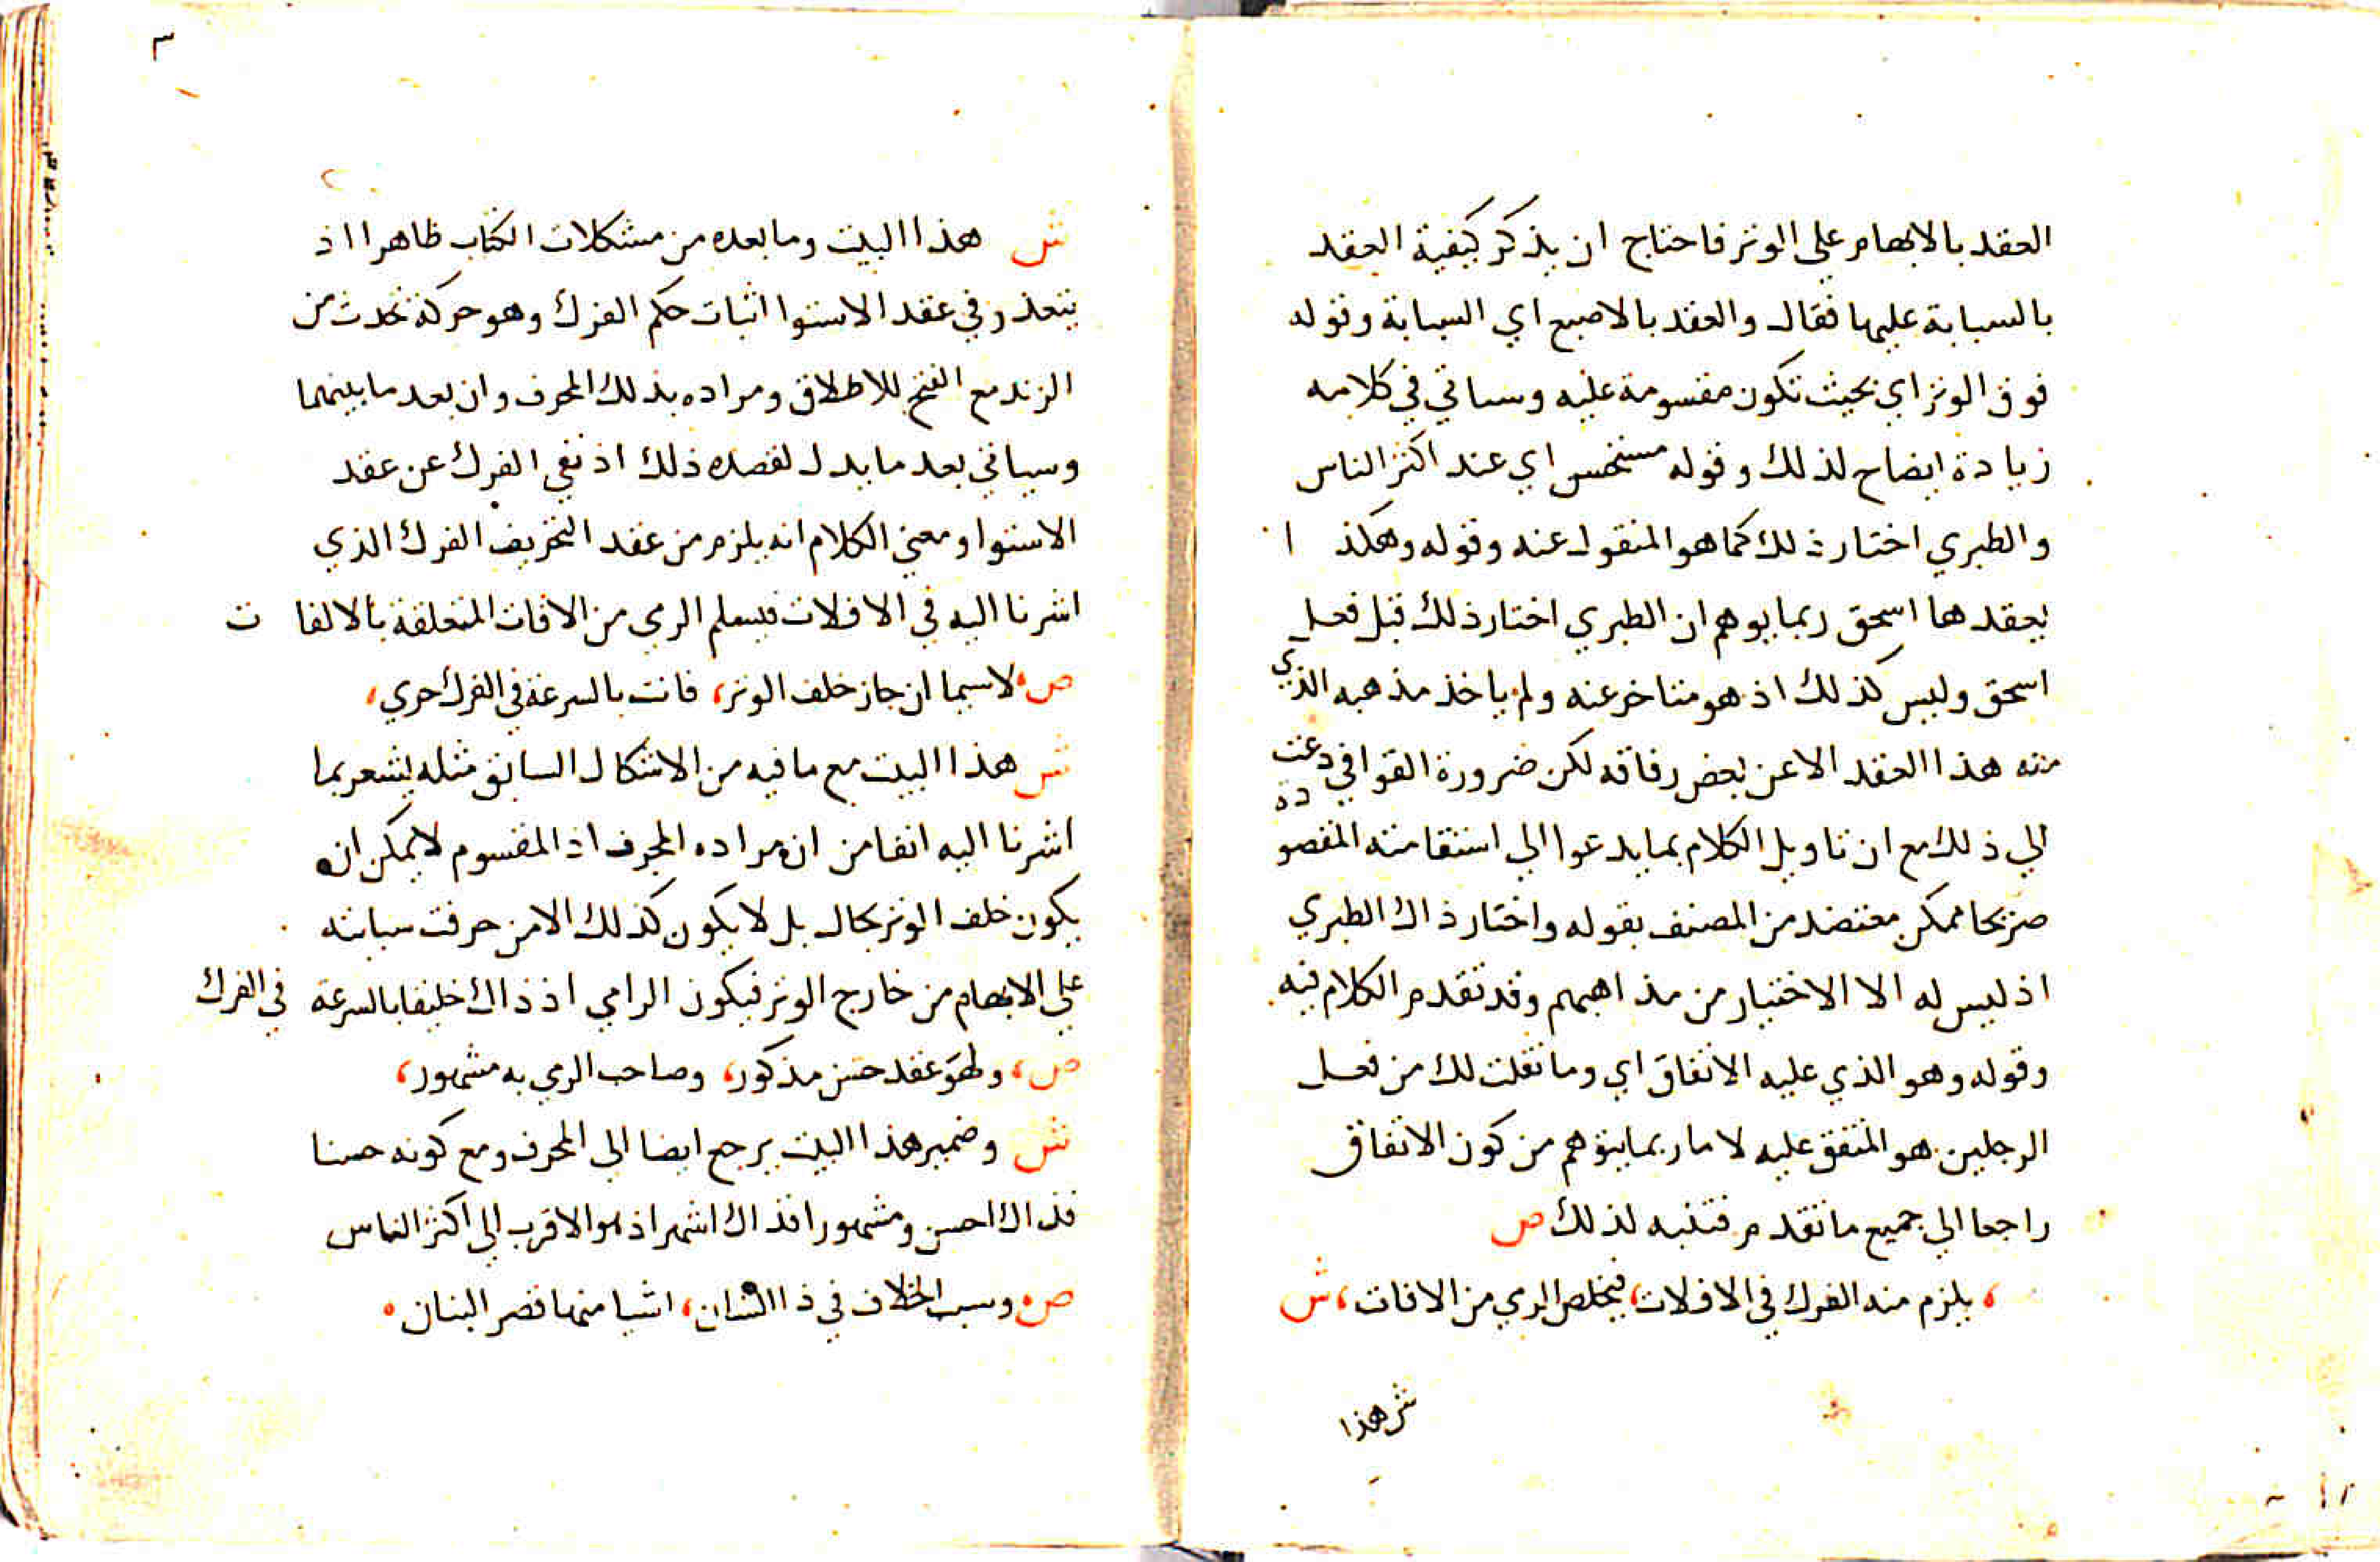 العقد بالابهام على الوتر فاحتاج ان يذكر كيفية العقد
بالسبابة عليها فقال والعقد بالاصبع اي السبابة وقوله
فوق الوتر اي بحيث تكون مقسومة عليه وسياتي في كلامه
زيادة ايضاح لذلك وقوله مستحسن اي عند اكثر الناس
والطبري اختار ذلك كما هو المنقول عنه وقوله وهكذا
يعقدها اسحق ربما يوهم ان الطبري اختار ذلك قبل فعل
اسحق وليس كذلك اذ هو متاخر عنه ولم ياخذ مذهبه الذي
منه هذا العقد الا عن بعض رفاقه لكن ضرورة القوافي دعت
الي ذلك مع ان تاويل الكلام بما يدعوا الي استقامته المقصودة
صريحا ممكن معتضد من المصنف بقوله واختار ذاك الطبري
اذ ليس له الا الاختيار من مذاهبهم وقد تقدم الكلام فيه
وقوله وهو الذي عليه الاتفاق اي وما نقلت لك من فعل
الرجلين هو المتفق عليه لا ما ربما يتوهم من كون الاتفاق
راجعا الي جميع ما تقدم فتنبه لذلك ص
، يلزم منه الفرك في الافلات، فيخلص الرمي من الافات، ش
ش هذا
٣
ش هذا البيت وما بعده من مشكلات الكتاب ظاهرا اذ
يتعذر في عقد الاستوا اثبات حكم الفرك وهو حركة تحدث من
الزند مع الفتح للاطلاق ومراده بذلك المحرف وان بعد ما بينهما
وسياتي بعد ما يدل لقصده ذلك اذ نفي الفرك عن عقد
الاستوا ومعني الكلام انه يلزم من عقد التحريف الفرك الذي
اشرنا اليه في الافلات فيسلم الرمي من الافات المتعلقة بالالفات
ص، لاسيما ان جاز خلف الوتر، فانت بالسرعة في الفرك حري،
ش هذا البيت مع ما فيه من الاشكال السابق مثله يشعر بما
اشرنا اليه انفا من ان مراده المحرف اذ المقسوم لا يمكن ان
يكون خلف الوتر بحال بل لا يكون كذلك الا من حرفت سبابته
علي الابهام من خارج الوتر فيكون الرامي اذ ذاك خليقا بالسرعة في الفرك
ص، وهو عقد حسن مذكور، وصاحب الرمي به مشهور،
ش وضمير هذا البيت يرجع ايضا الي المحرف ومع كونه حسنا
فذاك احسن ومشهورا فذاك اشهر اذ هو الاقرب الي اكثر الناس
ص، وسبب الخلاف في ذا الشان، اشيا منها قصر البنان،